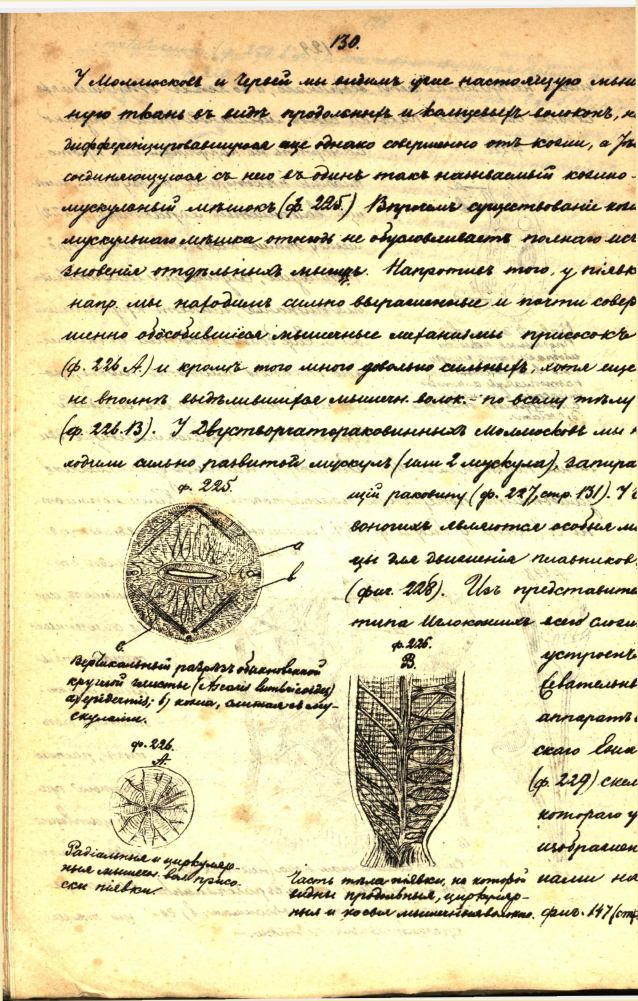 130.
У Моллюсковъ и Червей мы видимъ уже настоящую мыш
ную ткань въ видѣ продольныхъ и кольцевыхъ волоконъ, н
дифференцировавшуюся еще однако совершенно отъ кожи, а
соединяющуюся съ нею въ одинъ такъ называемый кожно-
мускульный мѣшокъ (ф. 225.) Впрочемъ существованіе кож
мускульнаго мѣшка отнюдь не обусловливаетъ полнаго исч
зновенія отдѣльныхъ мышцъ. Напротивъ того, у піявк
напр. мы находимъ сильно выраженные и почти совер
шенно обособившіеся мышечные механизмы присосокъ
(ф. 226 А.) и кромѣ того много довольно сильныхъ, хотя еще
не вполнѣ выдѣлившихся мышечн. волок. по всему тѣлу
(ф. 226. В). У Двустворчатораковинныхъ Моллюсковъ мы н
ходимъ сильно развитой мускулъ (или 2 мускула), запира
ф. 225.
щій раковину (ф. 227, стр. 131). У
воногихъ являются особые м
цы для движенія плавниковъ
(фиг. 228). Изъ представите
типа Иглокожихъ всего слож
устроенъ
жевательны
аппаратъ
скаго
(ф. 229) скел
котораго у
изображен
нами на
фиг. 147 (стр
а
в
б.
Вертикальный разрѣзъ обыкновенной
круглой глисты (Ascaris lumbricoides)
а) epidermis; в) кожа, слитая съ му-
скулами.
ф. 226.
А.
Радіальныя и циркуляр-
ныя мышечн. вол. присо-
ски піявки.
ф. 226.
В.
Часть тѣла піявки, на которой
видны продольныя, циркуляр-
ныя и косыя мышечныя волокна.